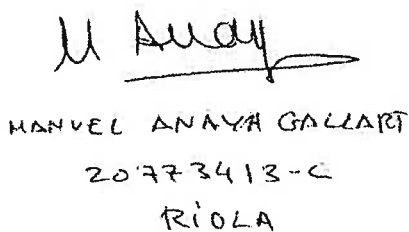 M Anay
MANUEL ANAYA GALLART
20773413-C
RiOLA